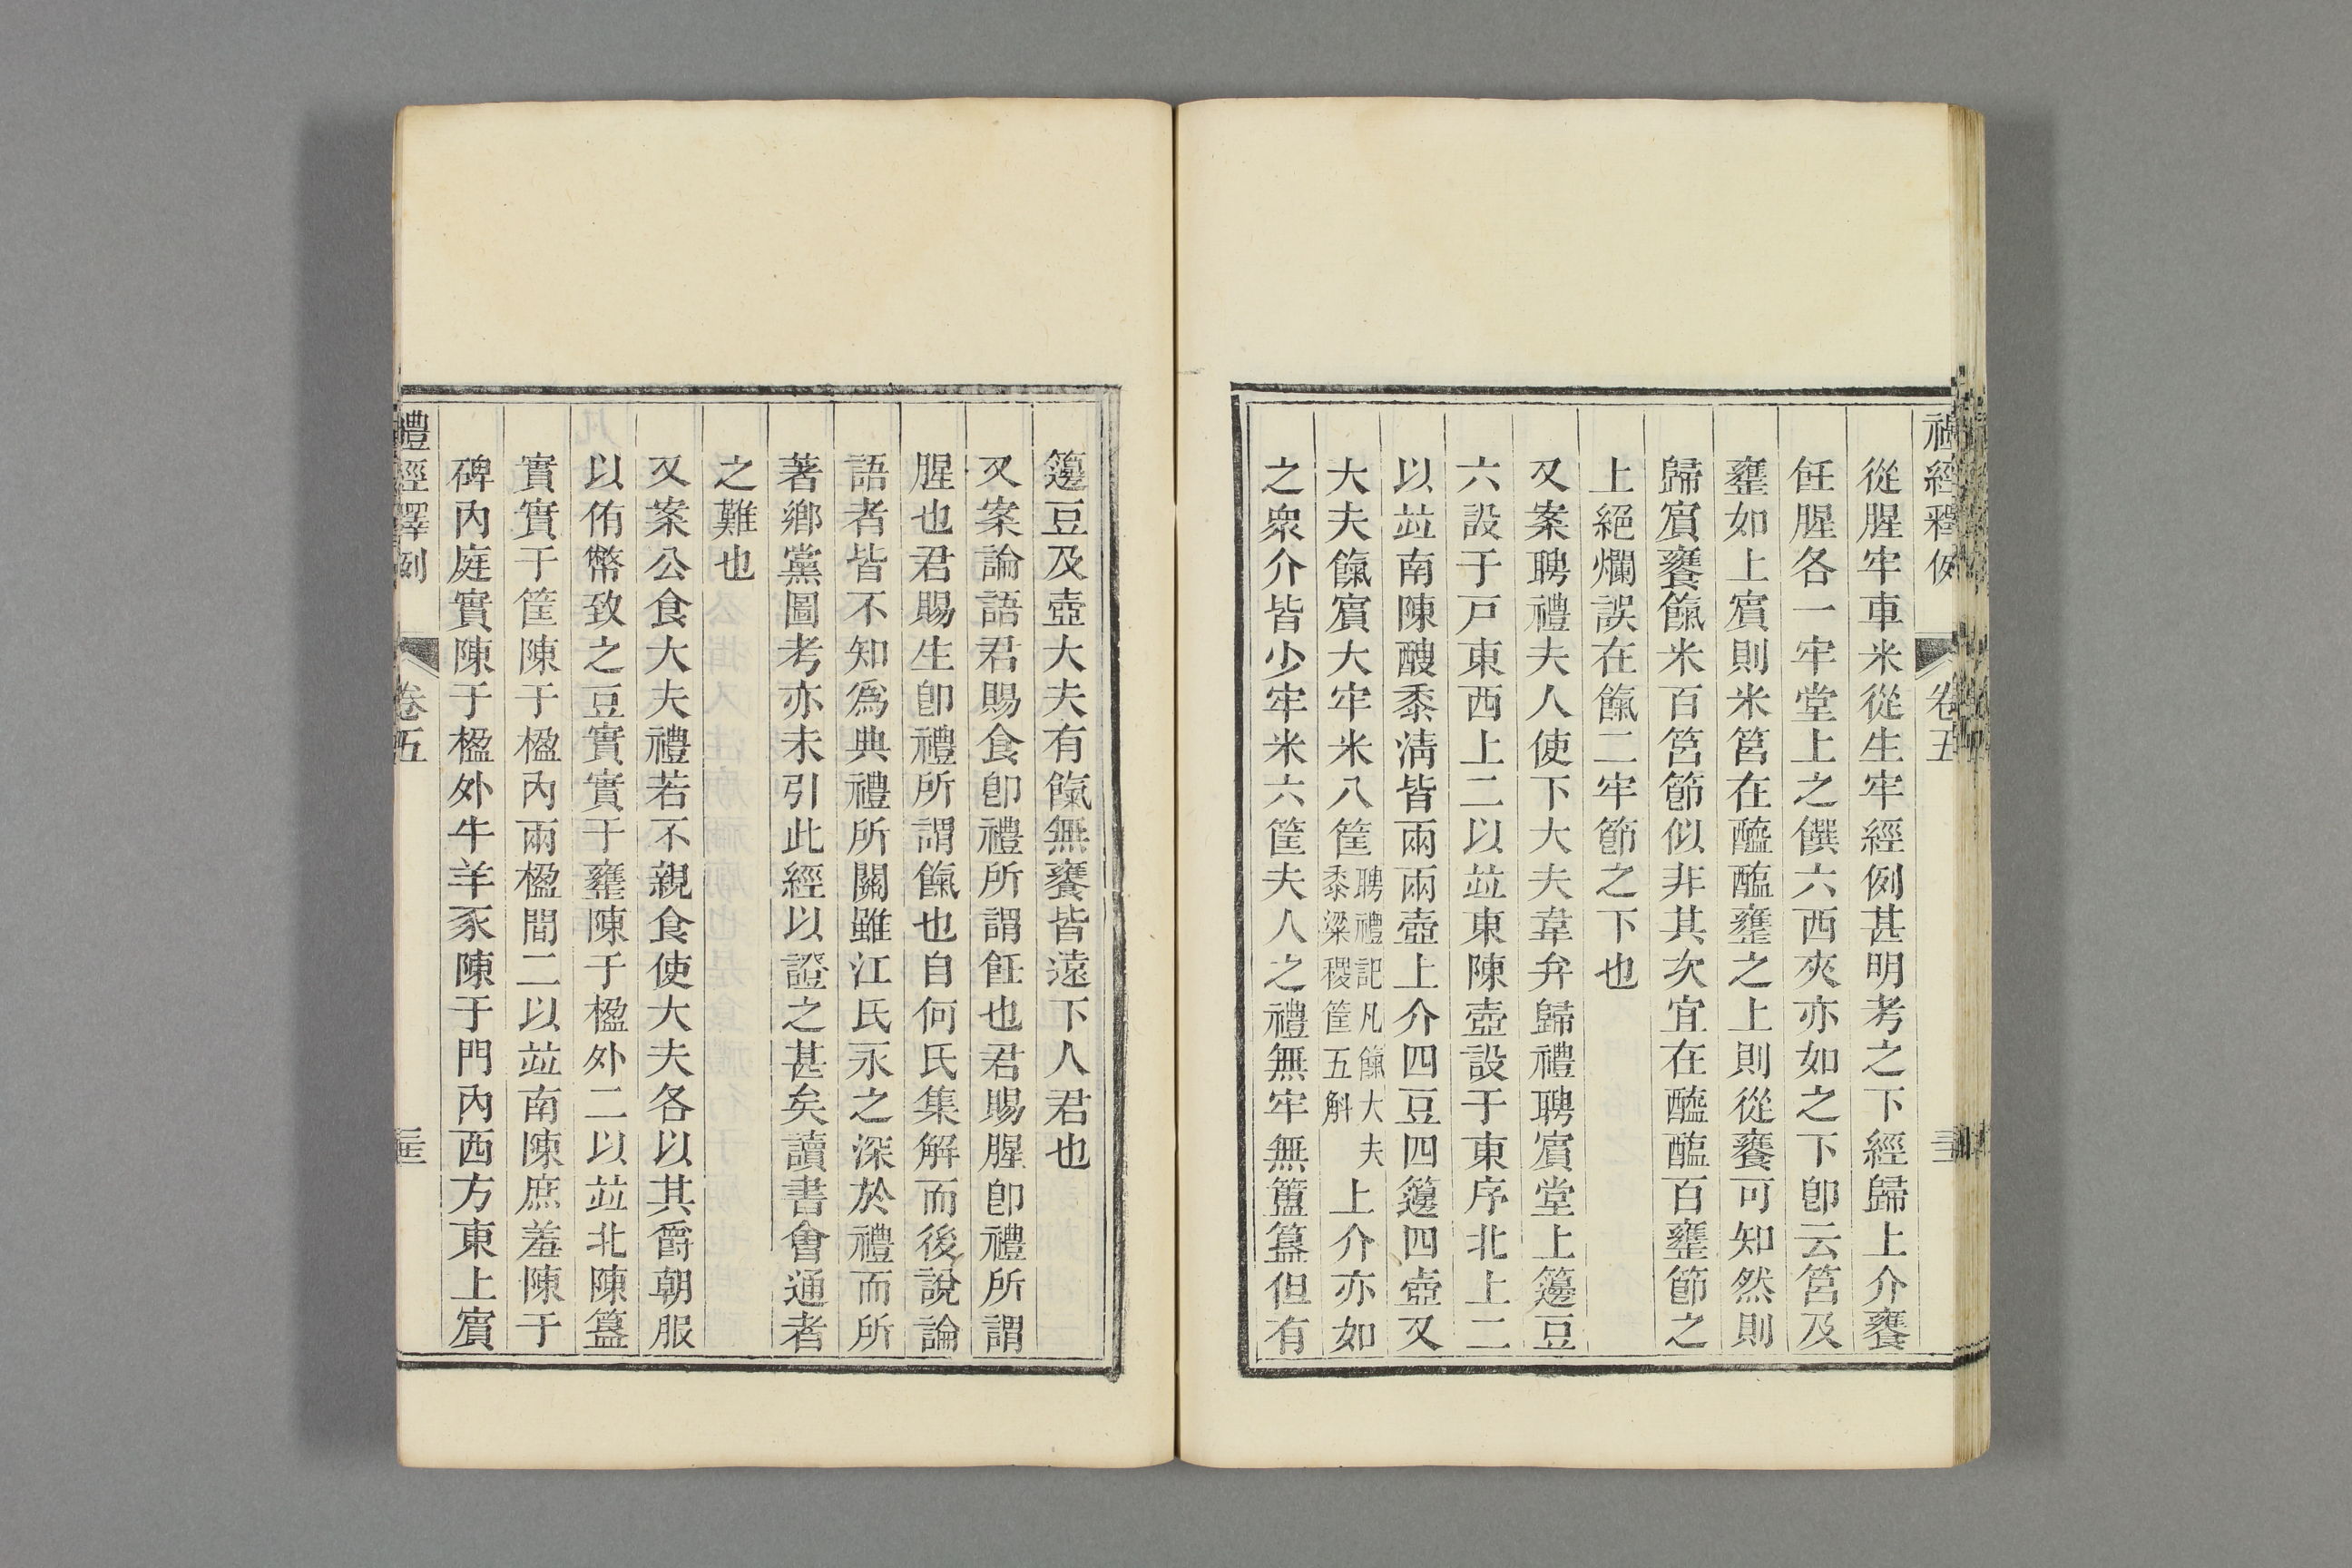 禮經釋例 卷五
從腥牢車米從生牢經例甚明考之下經歸上介饔
飪腥各一牢堂上之饌六西夾亦如之下卽云筥及
罋如上賔則米筥在醯醢罋之上則從饔可知然則
歸賔饔餼米百筥節似非其次宜在醯醢百罋節之
上絕爛誤在餼二牢節之下也
又案聘禮夫人使下大夫韋弁歸禮聘賔堂上籩豆
六設于戸東西上二以竝東陳壺設于東序北上二
以竝南陳醙黍淸皆兩兩壺上介四豆四籩四壺又
大夫餼賔大牢米八筐聘禮記凡餼大夫黍粱稷筐五斛上介亦如
之衆介皆少牢米六筐夫人之禮無牢無簠簋但有
籩豆及壺大夫有餼無饔皆遠下人君也
又案論語君賜食卽禮所謂飪也君賜腥卽禮所謂
腥也君賜生卽禮所謂餼也自何氏集解而後說論
語者皆不知爲典禮所關雖江氏永之深於禮而所
著鄉黨圖考亦未引此經以證之甚矣讀書會通者
之難也
又案公食大夫禮若不親食使大夫各以其爵朝服
以侑幣致之豆實實于罋陳于楹外二以竝北陳簋
實實于筐陳于楹內兩楹間二以竝南陳庶羞陳于
碑內庭實陳于楹外牛羊豕陳于門內西方東上賔
禮經釋例 卷五